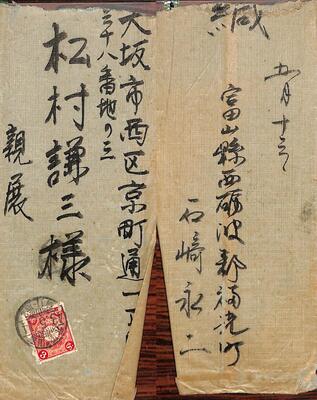 大坂市西区京町通一丁
三十八番地の三
松村謙三様
親展
緘
五月十三
富山縣西礪波郡福光町
石﨑永二